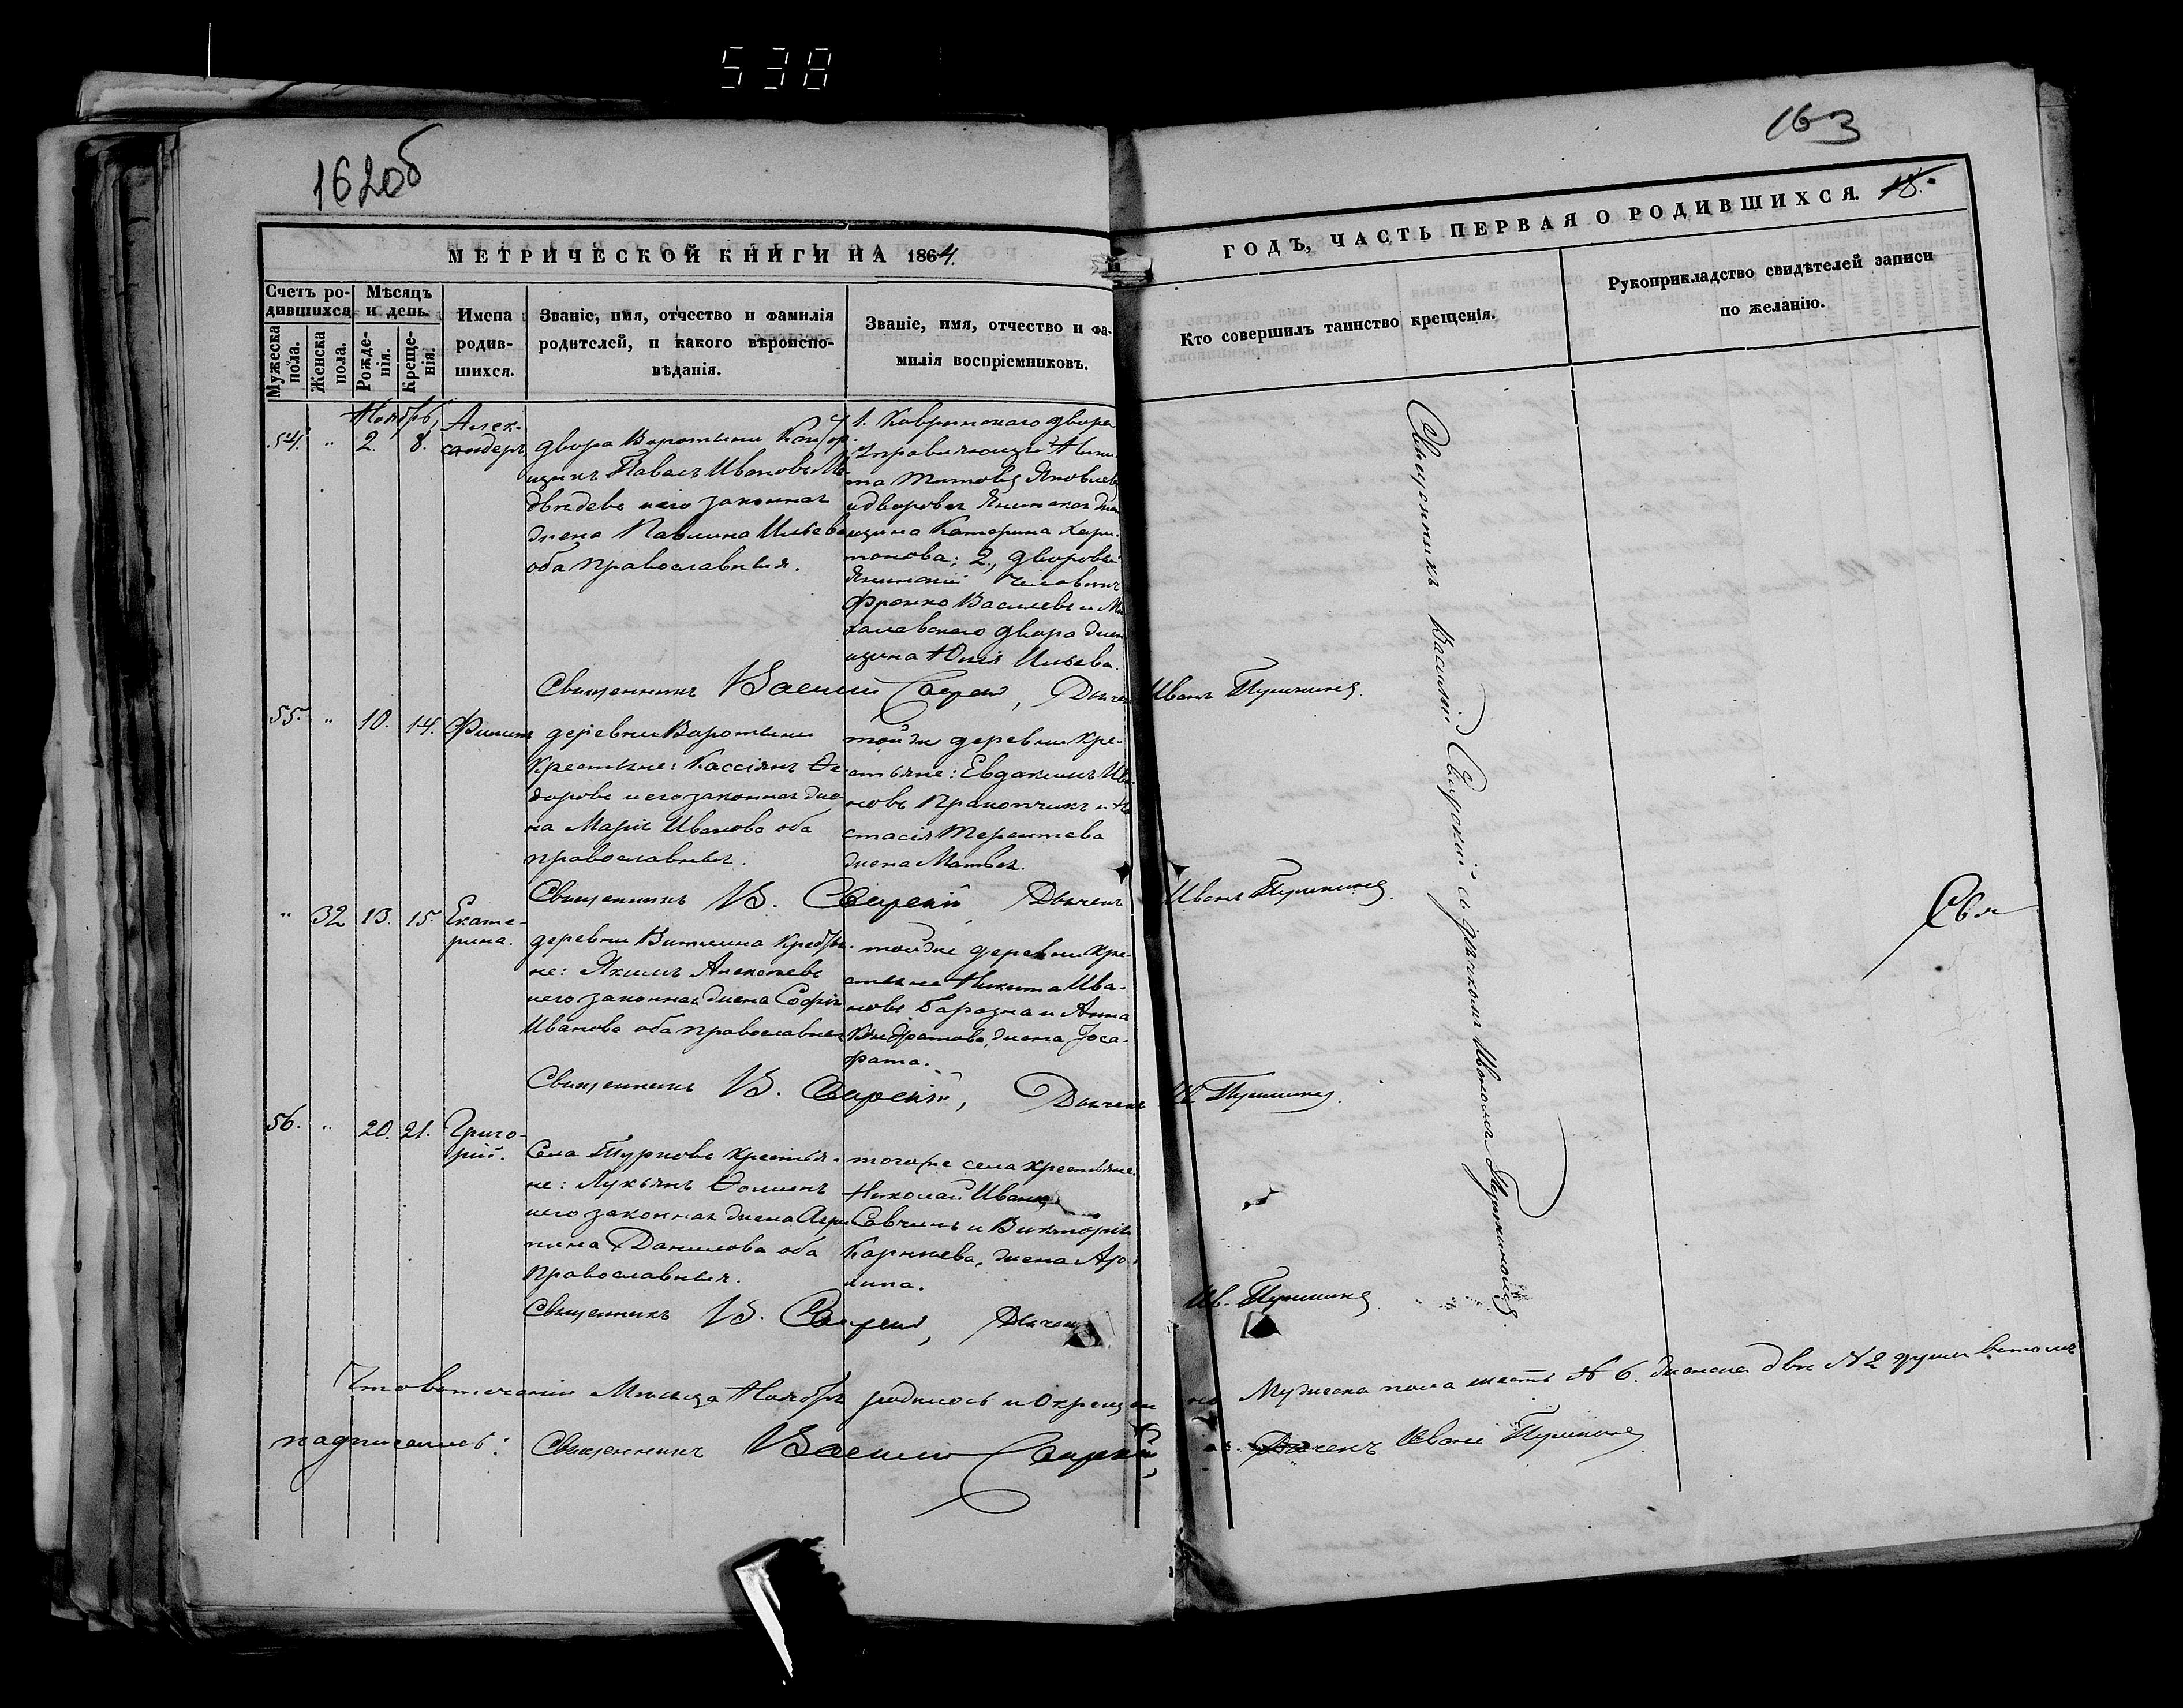 538
162об
163
МЕТРИЧЕСКОЙ КНИГИ НА 1864.
ГОДЪ, ЧАСТЬ ПЕРВАЯ О РОДИВШИХСЯ. 18.
Счетъ ро-
дившихся
Мужеска пола.
Женска пола.
Мѣсяцъ
и день.
Рожде-
нія.
Креще-
нія.
Имена
родив-
шихся.
Званіе, имя, отчество и фамилія
родителей, и какого вѣроиспо-
вѣданія.
Званіе, имя, отчество и фа-
милія воспріемниковъ.
Кто совершилъ таинство крещенія.
Рукоприкладство свидѣтелей записи
по желанію.
Ноябрь
54. " 2. 8. Алек-
сандеръ
двора Воротыни
Павелъ Ивановъ Ме-
двѣдевъ и его законная
жена Павлина Ильева
оба православныя.
1. Ковринскаго двора
Управляющій Ники-
та Титовъ Яковлевъ
и дворовая Янинская жен-
щина Катарина Хари-
тонова; 2., дворовый
Янинскій человѣкъ
Франко Василевъ и Ми-
халевскаго двора жен-
щина Юлія Ильева.
Священникъ Василій Свирскій, Дьячекъ Иванъ Пушкинъ.
55. " 10. 14. Филипъ
деревни Воротыни
Крестьяне: Кассіянъ Ѳе-
доровъ и его законная же-
на Марія Иванова оба
православныя.
тойже деревни кре-
стьяне: Евдакимъ Ива-
новъ Пракопчикъ и На-
стасія Терентева
жена Матвея.
Священникъ В. Свирскій Дьячекъ Иванъ Пушкинъ.
" 32 13. 15. Екате-
рина.
деревни Витлина Крестья-
не: Якимъ Алексѣевъ
и его законная жена Софія
Иванова оба православныя
тойже деревни кре-
стьяне Никита Ива-
новъ Баразна и Анна
жена Іоса-
фата.
Священникъ В. Свирскій, Дьячекъ И. Пушкинъ.
56. " 20. 21. Григо-
рій.
Села Турковъ крестья-
не: Лукьянъ Ѳоминъ
и его законная жена Агри-
пина Данилова оба
Православныя.
тогоже села крестьяне
Николай Ивановъ
Савчинъ и Викторія
Карнѣева, жена
Священникъ В. Свирскій, Дьячекъ Ив. Пушкинъ
Священникъ Василій Свирскій и дьячкомъ Иваномъ Пушкинымъ.
Свя
Что въ теченіи Мѣсяца Ноября родилось и Окрещено Мужеска пола шесть № 6. женска двѣ № 2 души въ томъ
подписались: Священникъ Василій Свирскій,
Дьячекъ Иванъ Пушкинъ